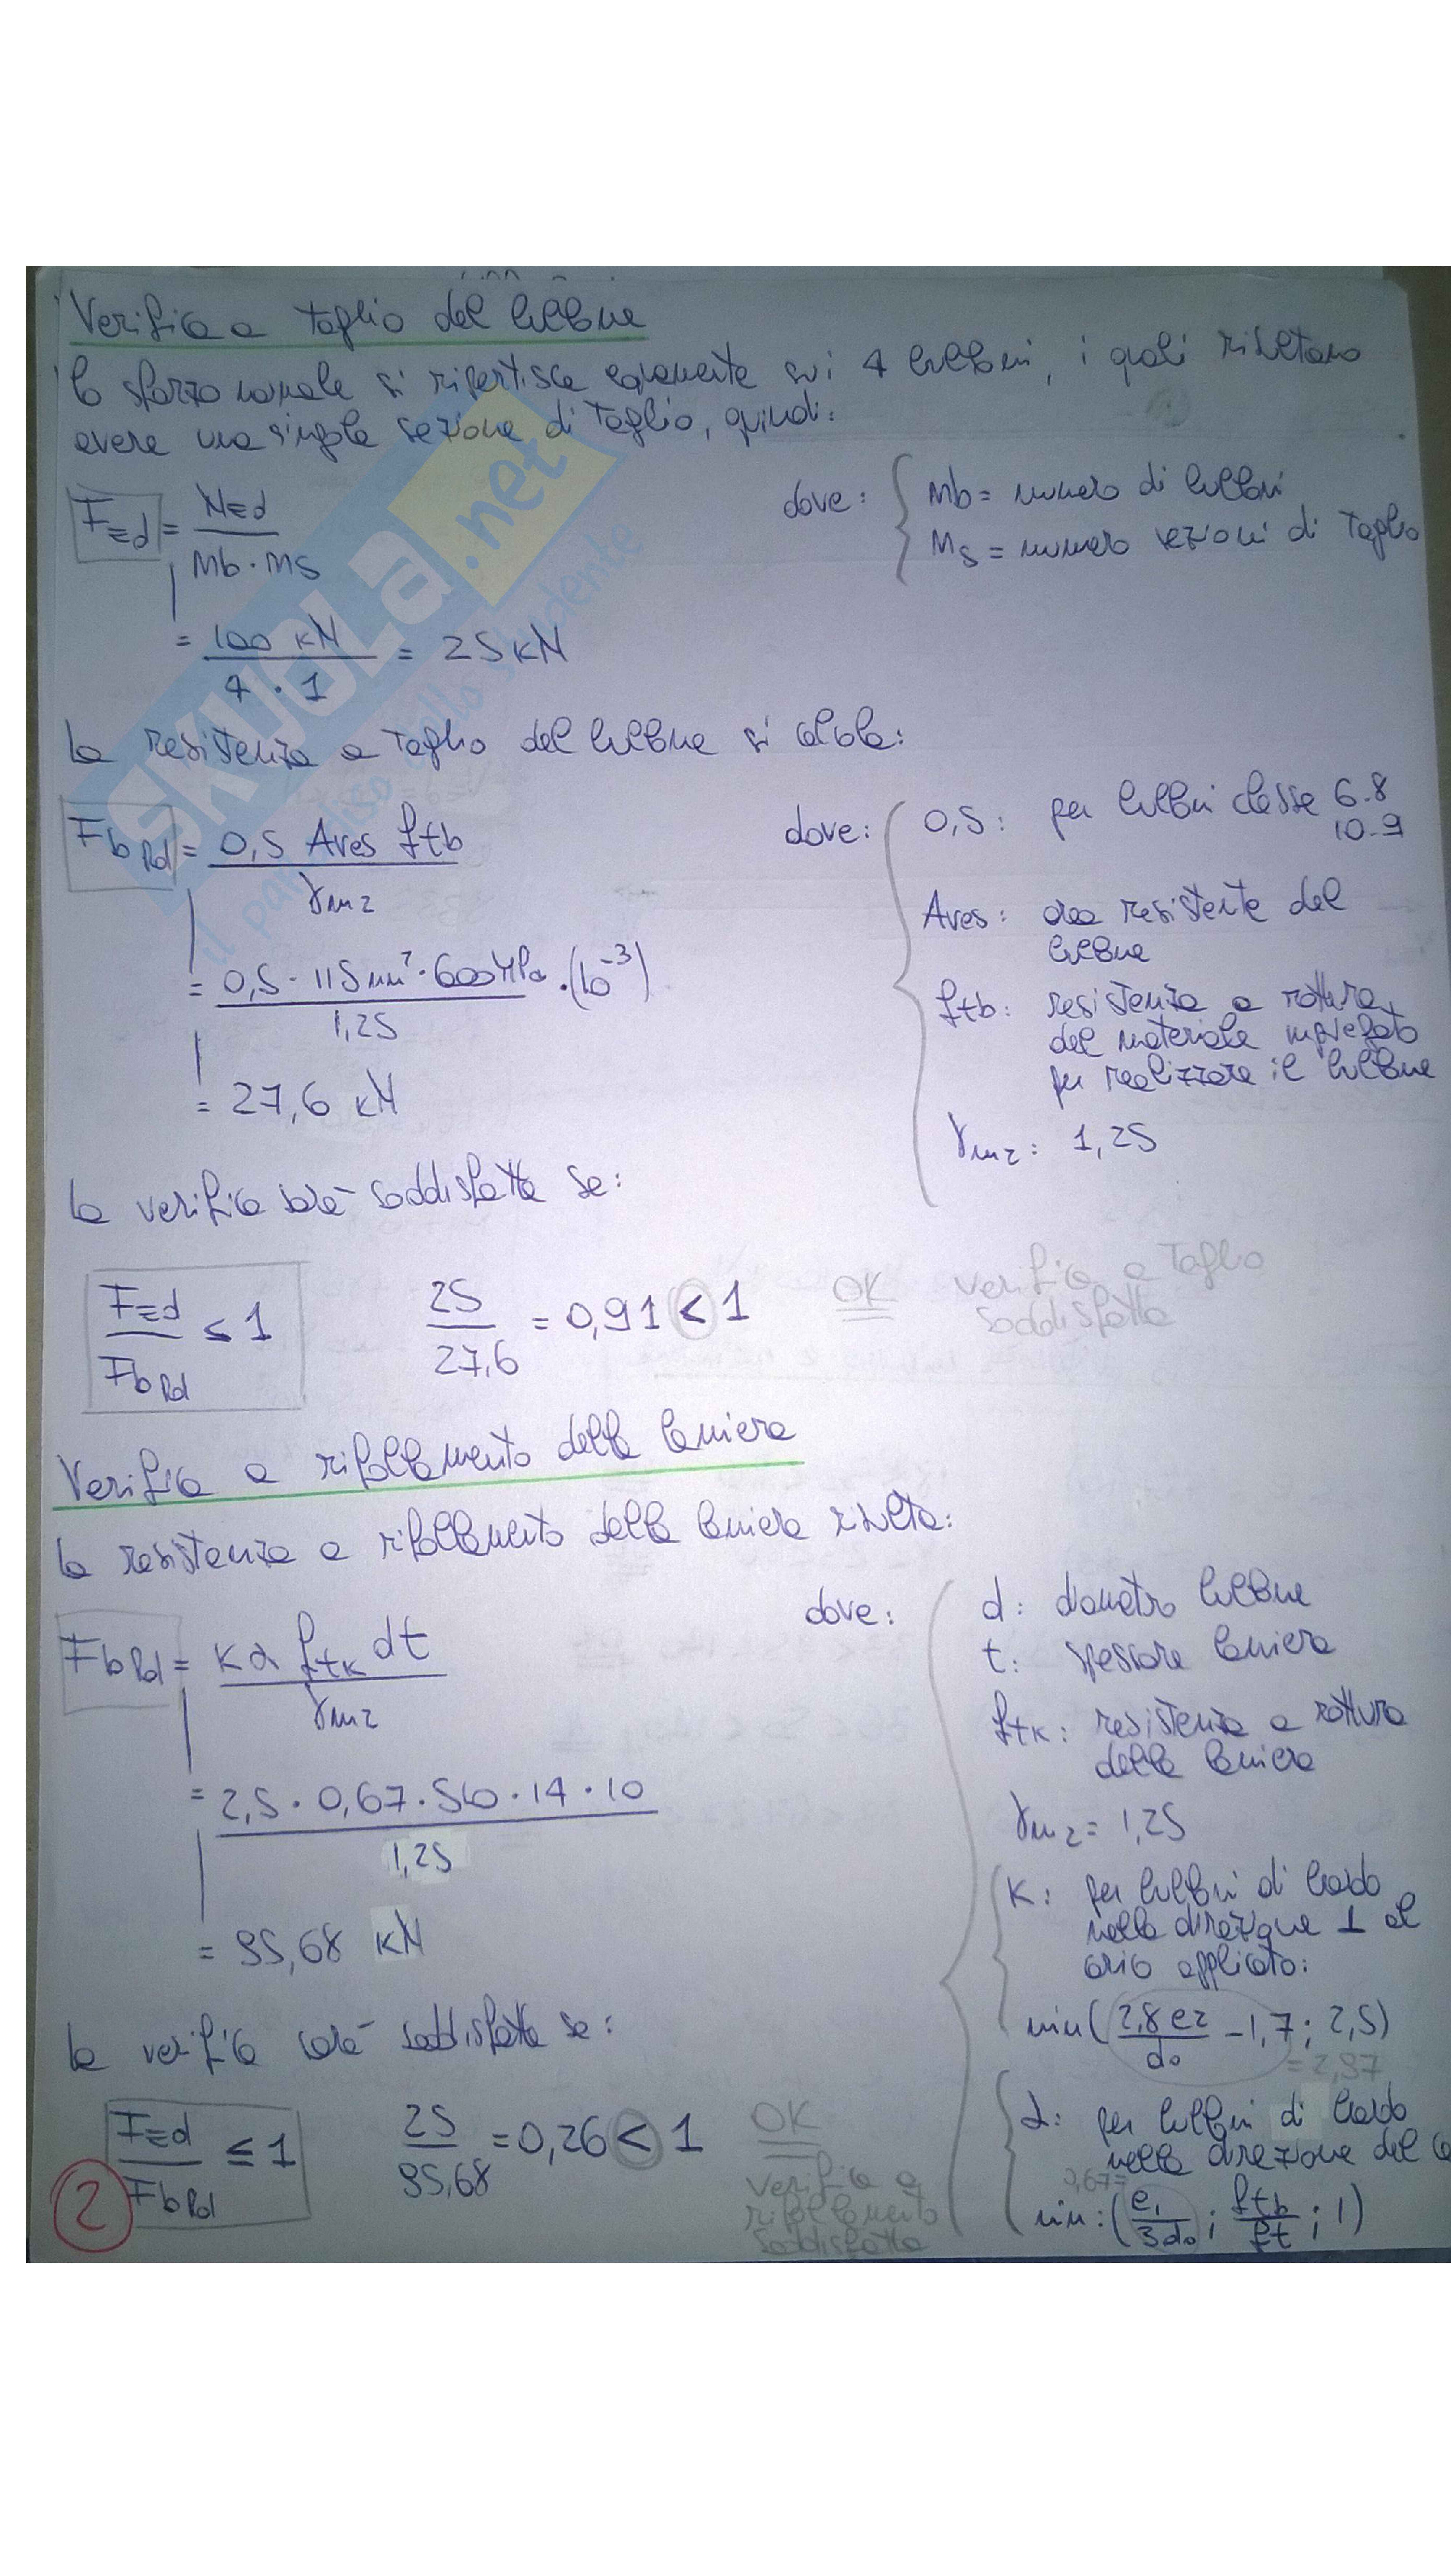 Verifica a taglio del bullone
lo sforzo normale si ripartisce equamente sui 4 bulloni, i quali risultano
avere una singola sezione di taglio, quindi:
FEd = NEd / (mb · ms)
dove: { mb = numero di bulloni
ms = numero sezioni di taglio
= 100 kN / (4 · 1) = 25 kN
la resistenza a taglio del bullone si calcola:
Fb Rd = 0,5 Ares ftb / γm2
dove: { 0,5: per bulloni classe 6.8
10.9
Ares: area resistente del
bullone
ftb: resistenza a rottura
del materiale impiegato
per realizzare il bullone
γm2: 1,25
= 0,5 · 115 mm² · 600 MPa · (10⁻³) / 1,25
= 27,6 kN
la verifica sarà soddisfatta se:
FEd / Fb Rd ≤ 1
25 / 27,6 = 0,91 < 1
OK verifica a taglio
soddisfatta
Verifica a rifollamento della lamiera
la resistenza a rifollamento della lamiera risulta:
Fb Rd = k α ftk dt / γm2
dove: { d: diametro bullone
t: spessore lamiera
ftk: resistenza a rottura
della lamiera
γm2 = 1,25
k: per bulloni di bordo
nella direzione ⊥ al
carico applicato:
min ( 2,8 e2 / d0 - 1,7 ; 2,5 )
= 2,97
α: per bulloni di bordo
nella direzione del
0,67=
min: ( e1 / 3d0 ; ftb / ft ; 1 )
= 2,5 · 0,67 · 510 · 14 · 10 / 1,25
= 95,68 kN
la verifica sarà soddisfatta se:
FEd / Fb Rd ≤ 1
25 / 95,68 = 0,26 < 1
OK
verifica a
rifollamento
soddisfatta
2
SKUOLA.net
il paradiso dello studente